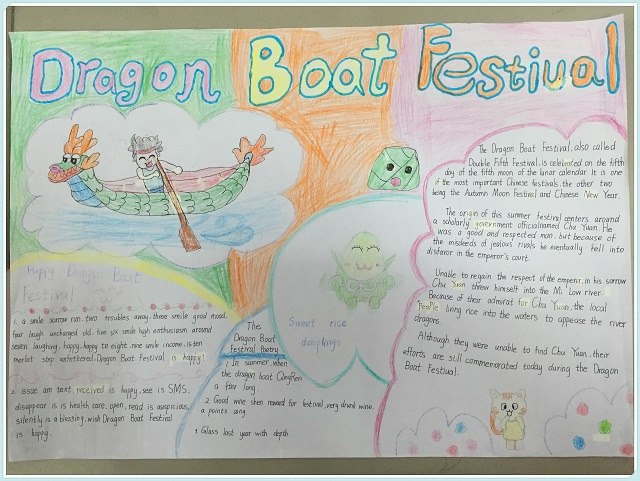 Dragon Boat Festival
The Dragon Boat Festival, also called
Double Fifth Festival, is celebrated on the fifth
day of the fifth moon of the lunar calendar. It is one
of the most important Chinese festivals, the other two
being the Autumn Moon Festival and Chinese New Year.
The origin of this summer festival centers around
a scholarly government official named Chu Yuan. He
was a good and respected man, but because of
the misdeeds of jealous rivals he eventually fell into
disfavor in the emperor's court.
Unable to regain the respect of the emperor, in his sorrow
Chu Yuan threw himself into the Mi Low river.
Because of their admirat for Chu Yuan, the local
People living rice into the waters to appease the river
dragons.
Although they were unable to find Chu Yuan, their
efforts are still commemorated today during the Dragon
Boat Festival.
Happy Dragon Boat
Festival
1. a smile sorrow run, two troubles away, three smile good mood,
four laugh unchanged old, five six smile high enthusiasm around
seven laughing, happy, happy to eight, nine smile income, is ten
merlot step unfettered, Dragon Boat Festival is happy!
2. issue are text, received is happy, see is SMS,
disappear is is health care, open, read is auspicious,
silently is a blessing, wish Dragon Boat Festival
is happy.
The
Dragon Boat
Festival Poetry
1. In summer, when
the dragon boat QingPen
a fter long.
2. Good wine shen reward for festival, very drunk wine,
a points song.
3. Glass last year with depth
Sweet rice
dumplings